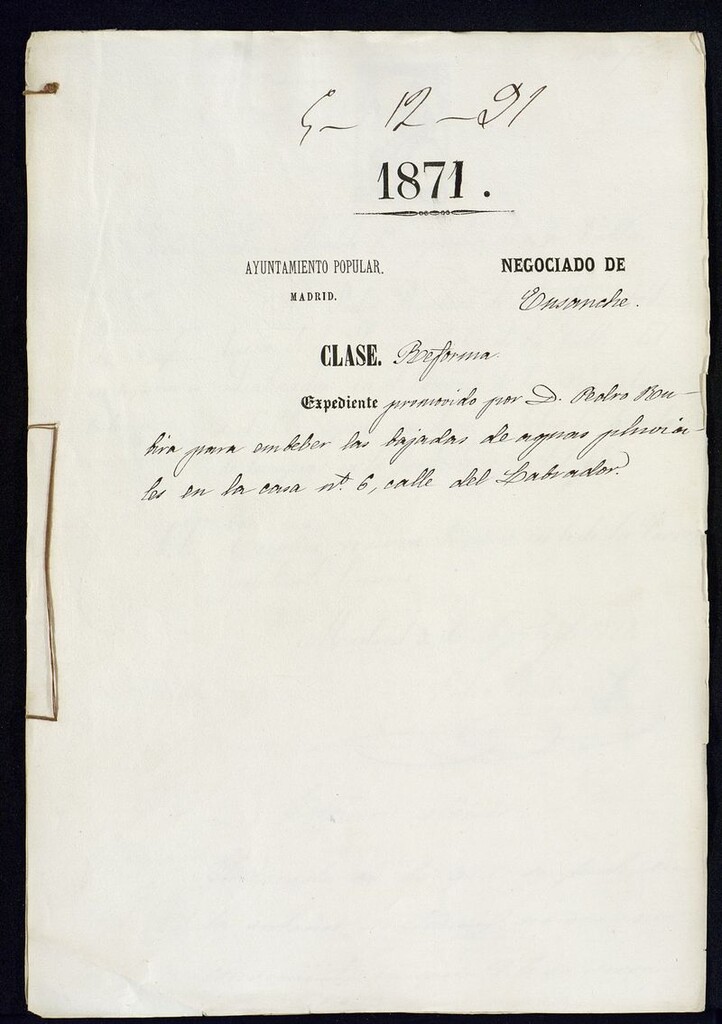 5 - 12 - 91
1871.
AYUNTAMIENTO POPULAR.
MADRID.
NEGOCIADO DE
Ensanche.
CLASE. Reforma
Expediente promovido por D. Pedro
para embeber las bajadas de aguas pluvia-
les en la casa nº 6, calle del Labrador.